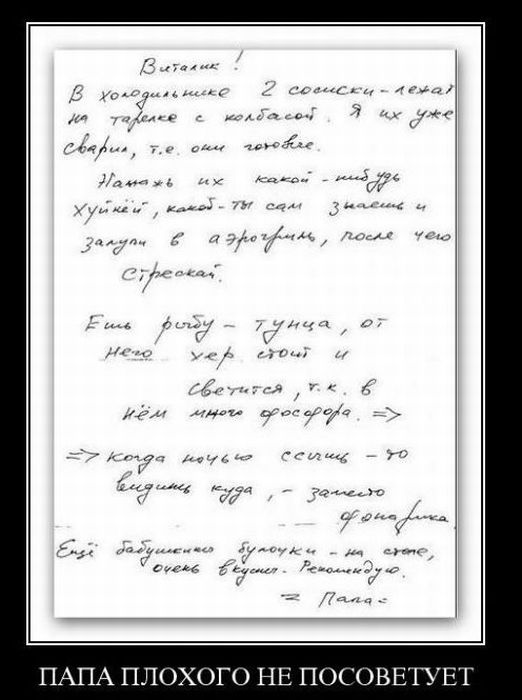 Виталик!
В холодильнике 2 сосиски - лежат
на тарелке с колбасой. Я их уже
сварил, т.е. они готовые.
Намажь их какой-нибудь
хуйнёй, какой-ты сам знаешь и
залупи в аэрогриль, после чего
стрескай.
Ешь рыбу - тунца, от
него хер стоит и
светится, т.к. в
нём много фосфора. =>
=> когда ночью ссышь - то
видишь куда, - заместо
фонарика.
Ещё бабушкины булочки - на столе,
очень вкусны. Рекомендую.
= Папа =
ПАПА ПЛОХОГО НЕ ПОСОВЕТУЕТ